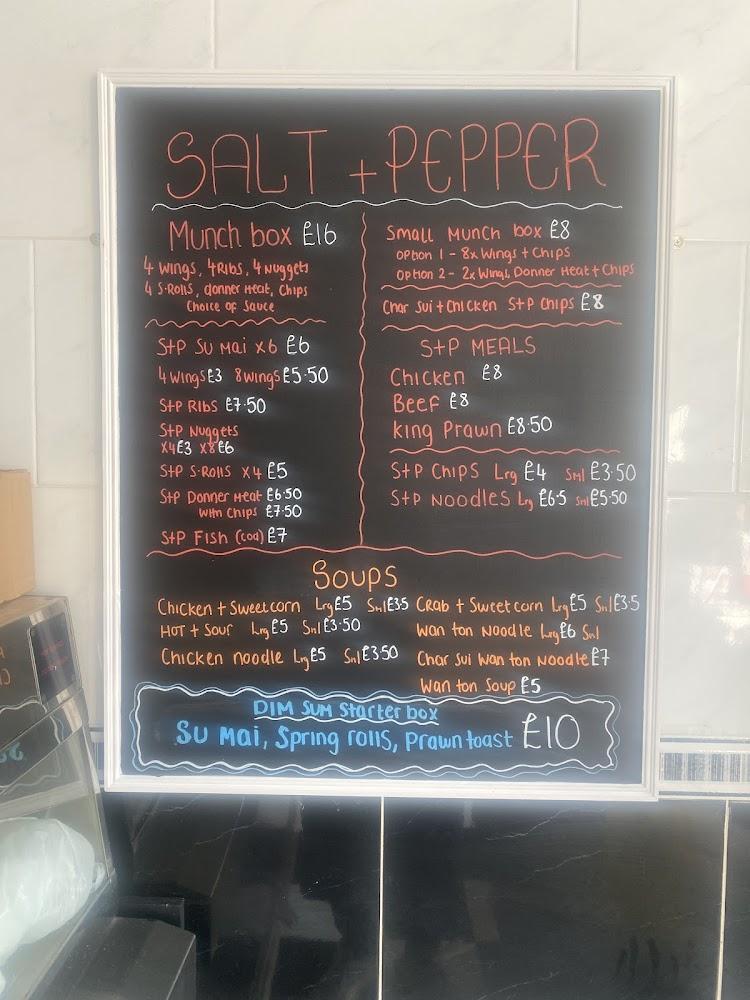 SALT + PEPPER
Munch box £16
4 Wings, 4 Ribs, 4 Nuggets
4 S.Rolls, donner Meat, Chips
Choice of Sauce
S+P Su Mai x6 £6
4 Wings £3 8 Wings £5.50
S+P Ribs £7.50
S+P Nuggets
x4 £3 x8 £6
S+P S.Rolls x4 £5
S+P Donner Meat £6.50
With Chips £7.50
S+P Fish (cod) £7
Small Munch box £8
option 1 - 8x Wings + Chips
option 2 - 2x Wings, Donner Meat + Chips
Char Sui + Chicken S+P Chips £8
S+P MEALS
Chicken £8
Beef £8
King Prawn £8.50
S+P Chips Lrg £4 Sml £3.50
S+P Noodles Lrg £6.5 Sml £5.50
Soups
Chicken + Sweetcorn Lrg £5 Sml £3.5
Hot + Sour Lrg £5 Sml £3.50
Chicken noodle Lrg £5 Sml £3.50
Crab + Sweetcorn Lrg £5 Sml £3.5
Wan ton Noodle Lrg £6 Sml
Char Sui Wan ton Noodle £7
Wan ton Soup £5
DIM SUM Starter box
Su Mai, Spring rolls, Prawn toast £10